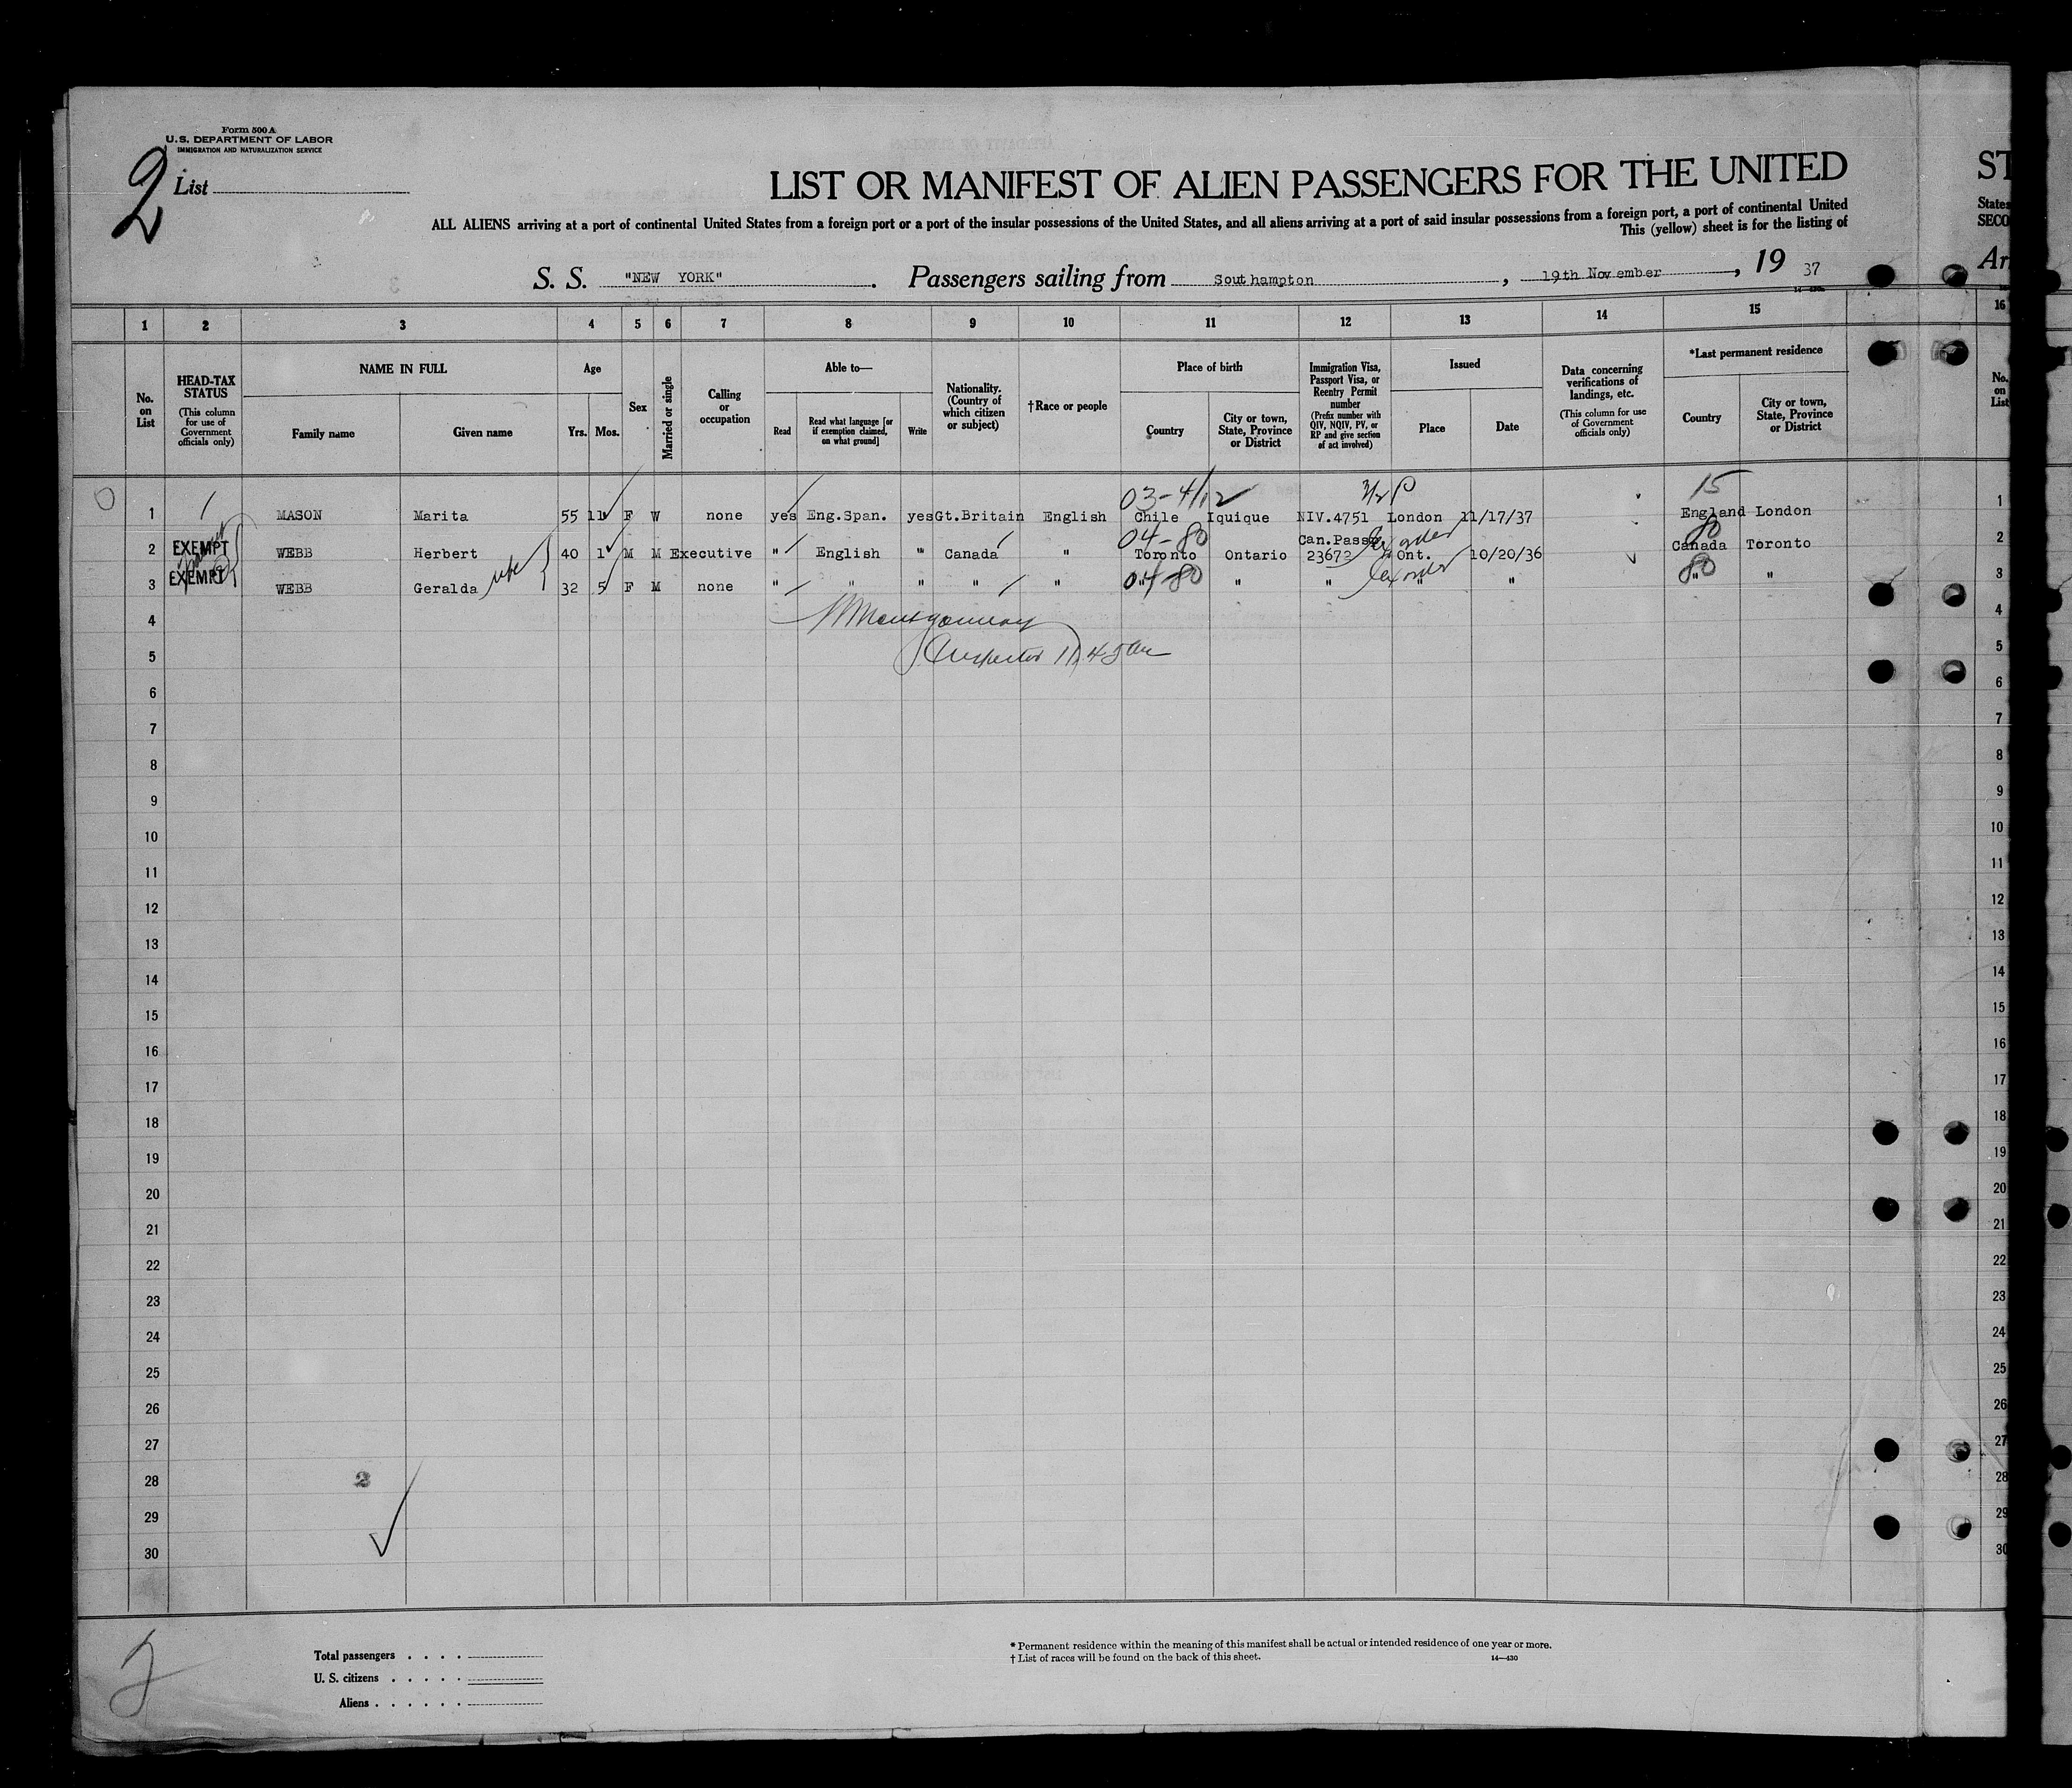 Form 500 A
U.S. DEPARTMENT OF LABOR
IMMIGRATION AND NATURALIZATION SERVICE
2 List
LIST OR MANIFEST OF ALIEN PASSENGERS FOR THE UNITED
ALL ALIENS arriving at a port of continental United States from a foreign port or a port of the insular possessions of the United States, and all aliens arriving at a port of said insular possessions from a foreign port, a port of continental United
This (yellow) sheet is for the listing of
S. S. "NEW YORK". Passengers sailing from Southampton, 19th November, 19 37
ST
States
SECO
Arr
1 2 3 4 5 6 7 8 9 10 11 12 13 14 15 16
No. on List
HEAD-TAX STATUS (This column for use of Government officials only)
NAME IN FULL
Family name
Given name
Age
Yrs. Mos.
Sex
Married or single
Calling or occupation
Able to—
Read
Read what language [or if exemption claimed, on what ground]
Write
Nationality. (Country of which citizen or subject)
†Race or people
Place of birth
Country
City or town, State, Province or District
Immigration Visa, Passport Visa, or Reentry Permit number (Prefix number with QIV, NQIV, PV, or RP and give section of act involved)
Issued
Place
Date
Data concerning verifications of landings, etc. (This column for use of Government officials only)
*Last permanent residence
Country
City or town, State, Province or District
No. on List
03-4/12 3/2 P 15
1 MASON Marita 55 11 F W none yes Eng.Span. yes Gt.Britain English Chile Iquique NIV.4751 London 11/17/37 England London 1
04-80 Can.Pass. 80
2 EXEMPT WEBB Herbert 40 1 M M Executive " English " Canada " Toronto Ontario 23672 Ont. 10/20/36 Canada Toronto 2
3 EXEMPT WEBB Geralda wife 32 5 F M none " " " " " 04-80 " " " " " 80 " 3
4 Montgomery 4
5 Inspector 11.45am 5
6 6
7 7
8 8
9 9
10 10
11 11
12 12
13 13
14 14
15 15
16 16
17 17
18 18
19 19
20 20
21 21
22 22
23 23
24 24
25 25
26 26
27 27
28 2 28
29 29
30 30
2
Total passengers
U. S. citizens
Aliens
* Permanent residence within the meaning of this manifest shall be actual or intended residence of one year or more.
† List of races will be found on the back of this sheet. 14—430